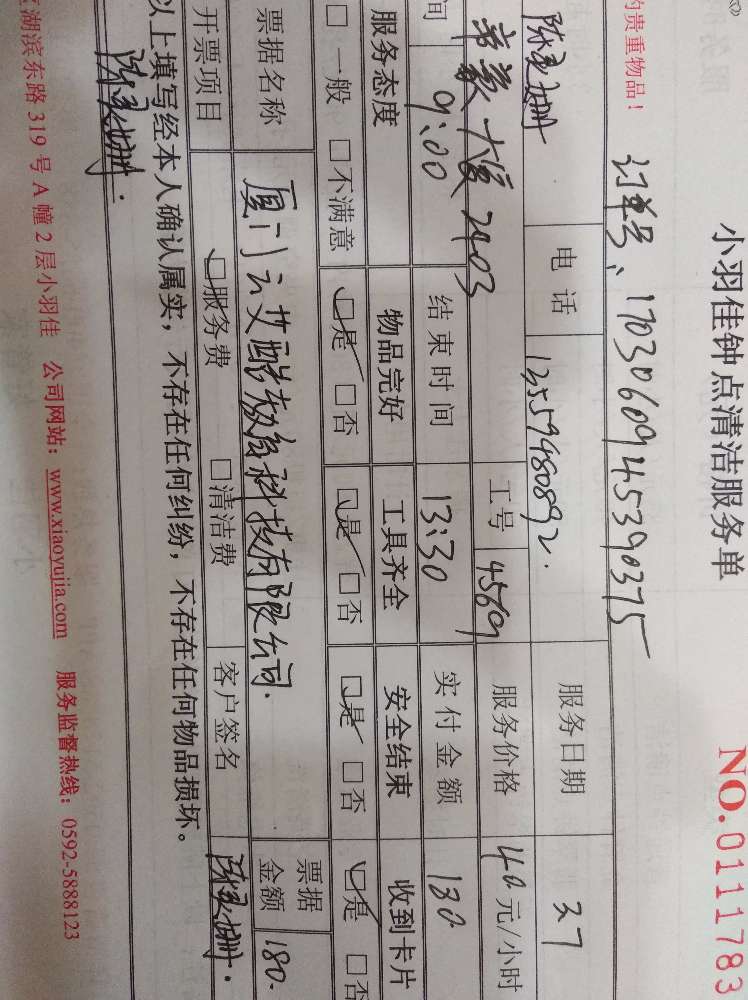 小羽佳钟点清洁服务单
NO. 0111783
的贵重物品！
订单号、1703060945390375
电话 13559480892. 服务日期 3.7
大厦 2403 工号 4569 服务价格 40 元/小时
间 9:00 结束时间 13:30 实付金额 180.
服务态度 物品完好 工具齐全 安全结束 收到卡片
□ 一般 □ 不满意 ☑是 □否 ☑是 □否 ☑是 □否 ☑是 □否
票据名称 厦门云艾酷数字科技有限公司. 票据金额 180.
开票项目 ☑服务费 □清洁费 客户签名
以上填写经本人确认属实，不存在任何纠纷，不存在任何物品损坏。
湖滨东路 319 号 A 幢 2 层小羽佳 公司网站：www.xiaoyujia.com 服务监督热线：0592-5888123